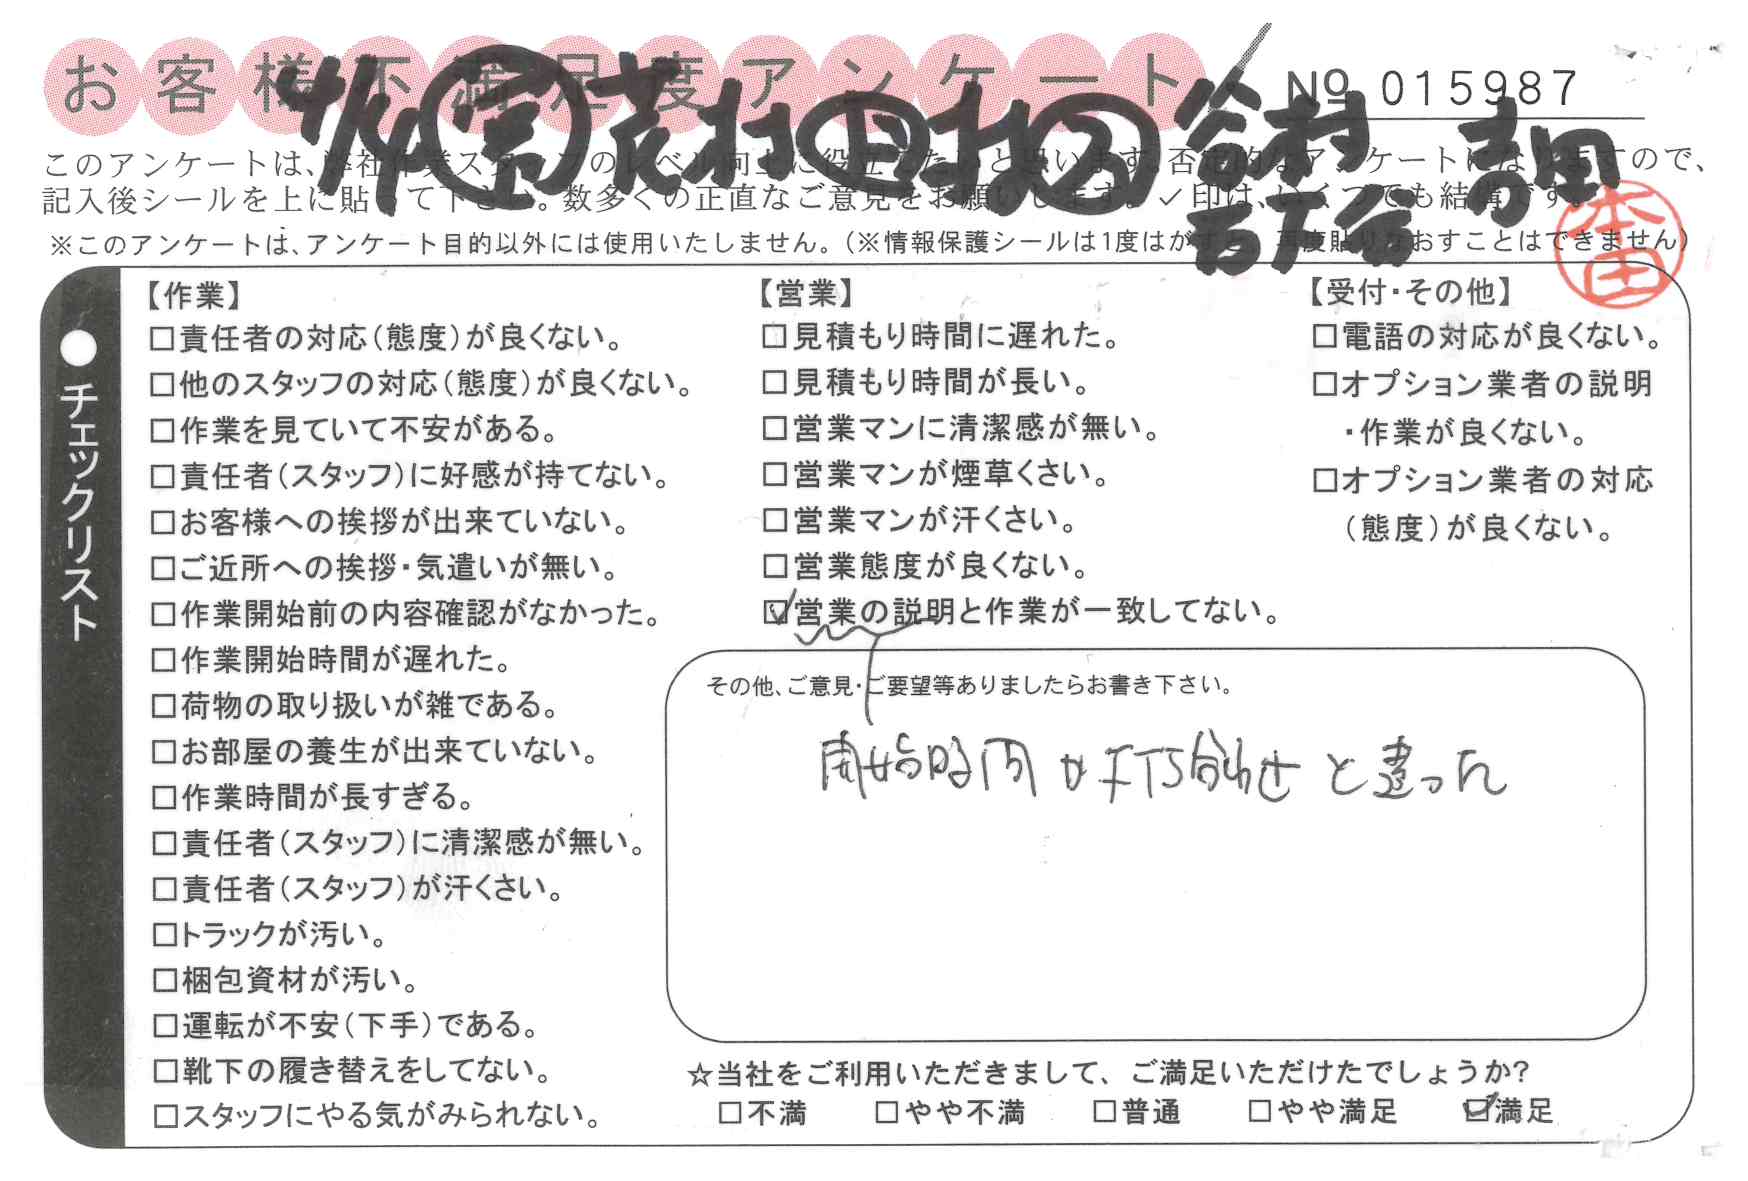 お客様不満足度アンケート
№ 015987
このアンケートは、弊社作業スタッフのレベル向上に役立てたいと思います。否定的なアンケートになりますので、
記入後シールを上に貼って下さい。数多くの正直なご意見をお願いします。✓印は、いくつでも結構です。
※このアンケートは、アンケート目的以外には使用いたしません。(※情報保護シールは1度はがすと、再度貼りなおすことはできません)
村
谷村
本田
●チェックリスト
【作業】
□責任者の対応(態度)が良くない。
□他のスタッフの対応(態度)が良くない。
□作業を見ていて不安がある。
□責任者(スタッフ)に好感が持てない。
□お客様への挨拶が出来ていない。
□ご近所への挨拶・気遣いが無い。
□作業開始前の内容確認がなかった。
□作業開始時間が遅れた。
□荷物の取り扱いが雑である。
□お部屋の養生が出来ていない。
□作業時間が長すぎる。
□責任者(スタッフ)に清潔感が無い。
□責任者(スタッフ)が汗くさい。
□トラックが汚い。
□梱包資材が汚い。
□運転が不安(下手)である。
□靴下の履き替えをしてない。
□スタッフにやる気がみられない。
【営業】
□見積もり時間に遅れた。
□見積もり時間が長い。
□営業マンに清潔感が無い。
□営業マンが煙草くさい。
□営業マンが汗くさい。
□営業態度が良くない。
☑営業の説明と作業が一致してない。
【受付・その他】
□電語の対応が良くない。
□オプション業者の説明
・作業が良くない。
□オプション業者の対応
(態度)が良くない。
その他、ご意見・ご要望等ありましたらお書き下さい。
開始時間が打ち合わせと違った
☆当社をご利用いただきまして、ご満足いただけたでしょうか?
□不満 □やや不満 □普通 □やや満足 ☑満足